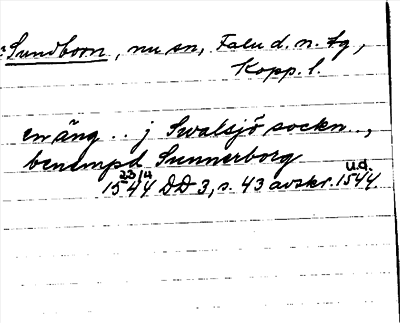 Sundborn, nu sn, Falu d. n. tg,
Kopp. l.
en äng .. j Swalsjö sockn..,
benempd Sunnerborg
1544 23/4 DD 3, s. 43 avskr. 1544 u.d.